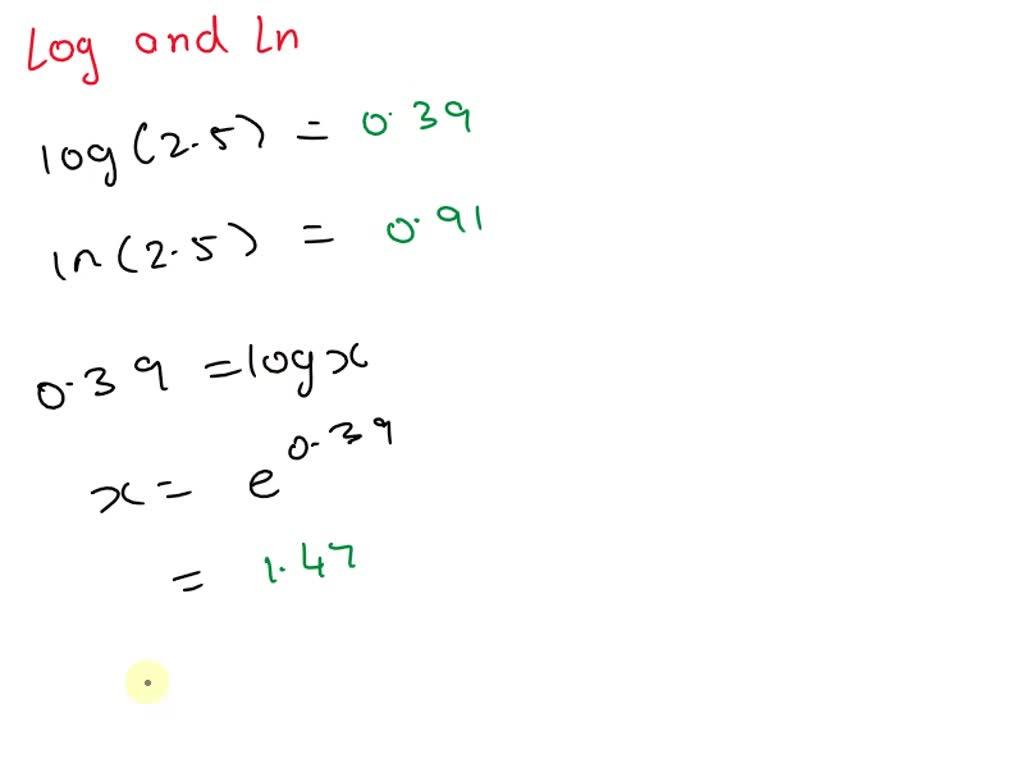 Log and Ln
log(2.5) = 0.39
ln(2.5) = 0.91
0.39 = log x
x = e^0.39
= 1.47